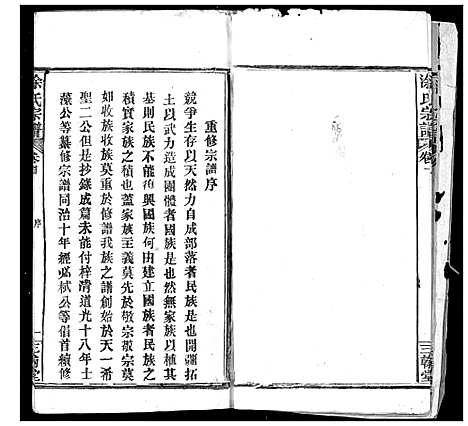 涂氏宗譜
卷首
三翰堂
重修宗譜序
競爭生存以天然力自成部落者民族是也開疆拓
土以武力造成團體者國族是也然無家族以植其
基則民族不能復興國族何由建立國族者民族之
積實家族之積也蓋家族主義莫先於敬宗敬宗莫
如收族收族莫重於修譜我族之譜創始於天一希
聖二公但是抄錄成篇未能付梓清道光十八年士
藻公等纂修宗譜同治十年經
栻公等倡首續修
涂氏宗譜
卷首
序
一
三翰堂